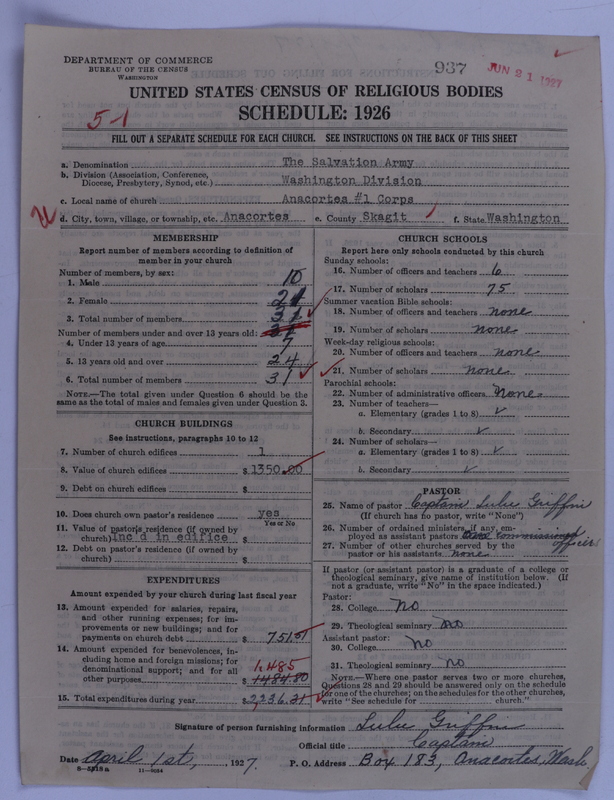 DEPARTMENT OF COMMERCE
BUREAU OF THE CENSUS
WASHINGTON
937
JUN 21 1927
UNITED STATES CENSUS OF RELIGIOUS BODIES
SCHEDULE: 1926
5-1
FILL OUT A SEPARATE SCHEDULE FOR EACH CHURCH. SEE INSTRUCTIONS ON THE BACK OF THIS SHEET
a. Denomination The Salvation Army
b. Division (Association, Conference, Diocese, Presbytery, Synod, etc.) Washington Division
c. Local name of church Anacortes #1 Corps
d. City, town, village, or township, etc. Anacortes e. County Skagit f. State Washington
MEMBERSHIP
Report number of members according to definition of
member in your church
Number of members, by sex:
1. Male 10
2. Female 21
3. Total number of members 31
Number of members under and over 13 years old:
4. Under 13 years of age 7
5. 13 years old and over 24
6. Total number of members 31
NOTE.—The total given under Question 6 should be the
same as the total of males and females given under Question 3.
CHURCH BUILDINGS
See instructions, paragraphs 10 to 12
7. Number of church edifices 1
8. Value of church edifices $1350.00
9. Debt on church edifices $
10. Does church own pastor's residence? yes
Yes or No
11. Value of pastor's residence (if owned by
church) inc'd in edifice
12. Debt on pastor's residence (if owned by
church) $
EXPENDITURES
Amount expended by your church during last fiscal year
13. Amount expended for salaries, repairs,
and other running expenses; for im-
provements or new buildings; and for
payments on church debt $ 751.51
14. Amount expended for benevolences, in-
cluding home and foreign missions; for
denominational support; and for all
other purposes $ 1484.80
1,485
15. Total expenditures during year $2,236.31
CHURCH SCHOOLS
Report here only schools conducted by this church
Sunday schools:
16. Number of officers and teachers 6
17. Number of scholars 75
Summer vacation Bible schools:
18. Number of officers and teachers none
19. Number of scholars none
Week-day religious schools:
20. Number of officers and teachers none
21. Number of scholars none
Parochial schools:
22. Number of administrative officers none
23. Number of teachers—
a. Elementary (grades 1 to 8) ✓
b. Secondary ✓
24. Number of scholars—
a. Elementary (grades 1 to 8) ✓
b. Secondary ✓
PASTOR
25. Name of pastor Captain Lulu Griffin
(If church has no pastor, write "None")
26. Number of ordained ministers, if any, em-
ployed as assistant pastors commissioned officer
27. Number of other churches served by the
pastor or his assistants none
If pastor (or assistant pastor) is a graduate of a college or
theological seminary, give name of institution below. (If
not a graduate, write "No" in the space indicated.)
Pastor:
28. College No
29. Theological seminary no
Assistant pastor:
30. College No
31. Theological seminary no
NOTE.—Where one pastor serves two or more churches,
Questions 28 and 29 should be answered only on the schedule
for one of the churches; on the schedules for the other churches,
write "See schedule for church."
Signature of person furnishing information Lulu Griffin
Official title Captain
Date April 1st, 1927. P. O. Address Box 183, Anacortes, Wash
8-5318a 11-9084